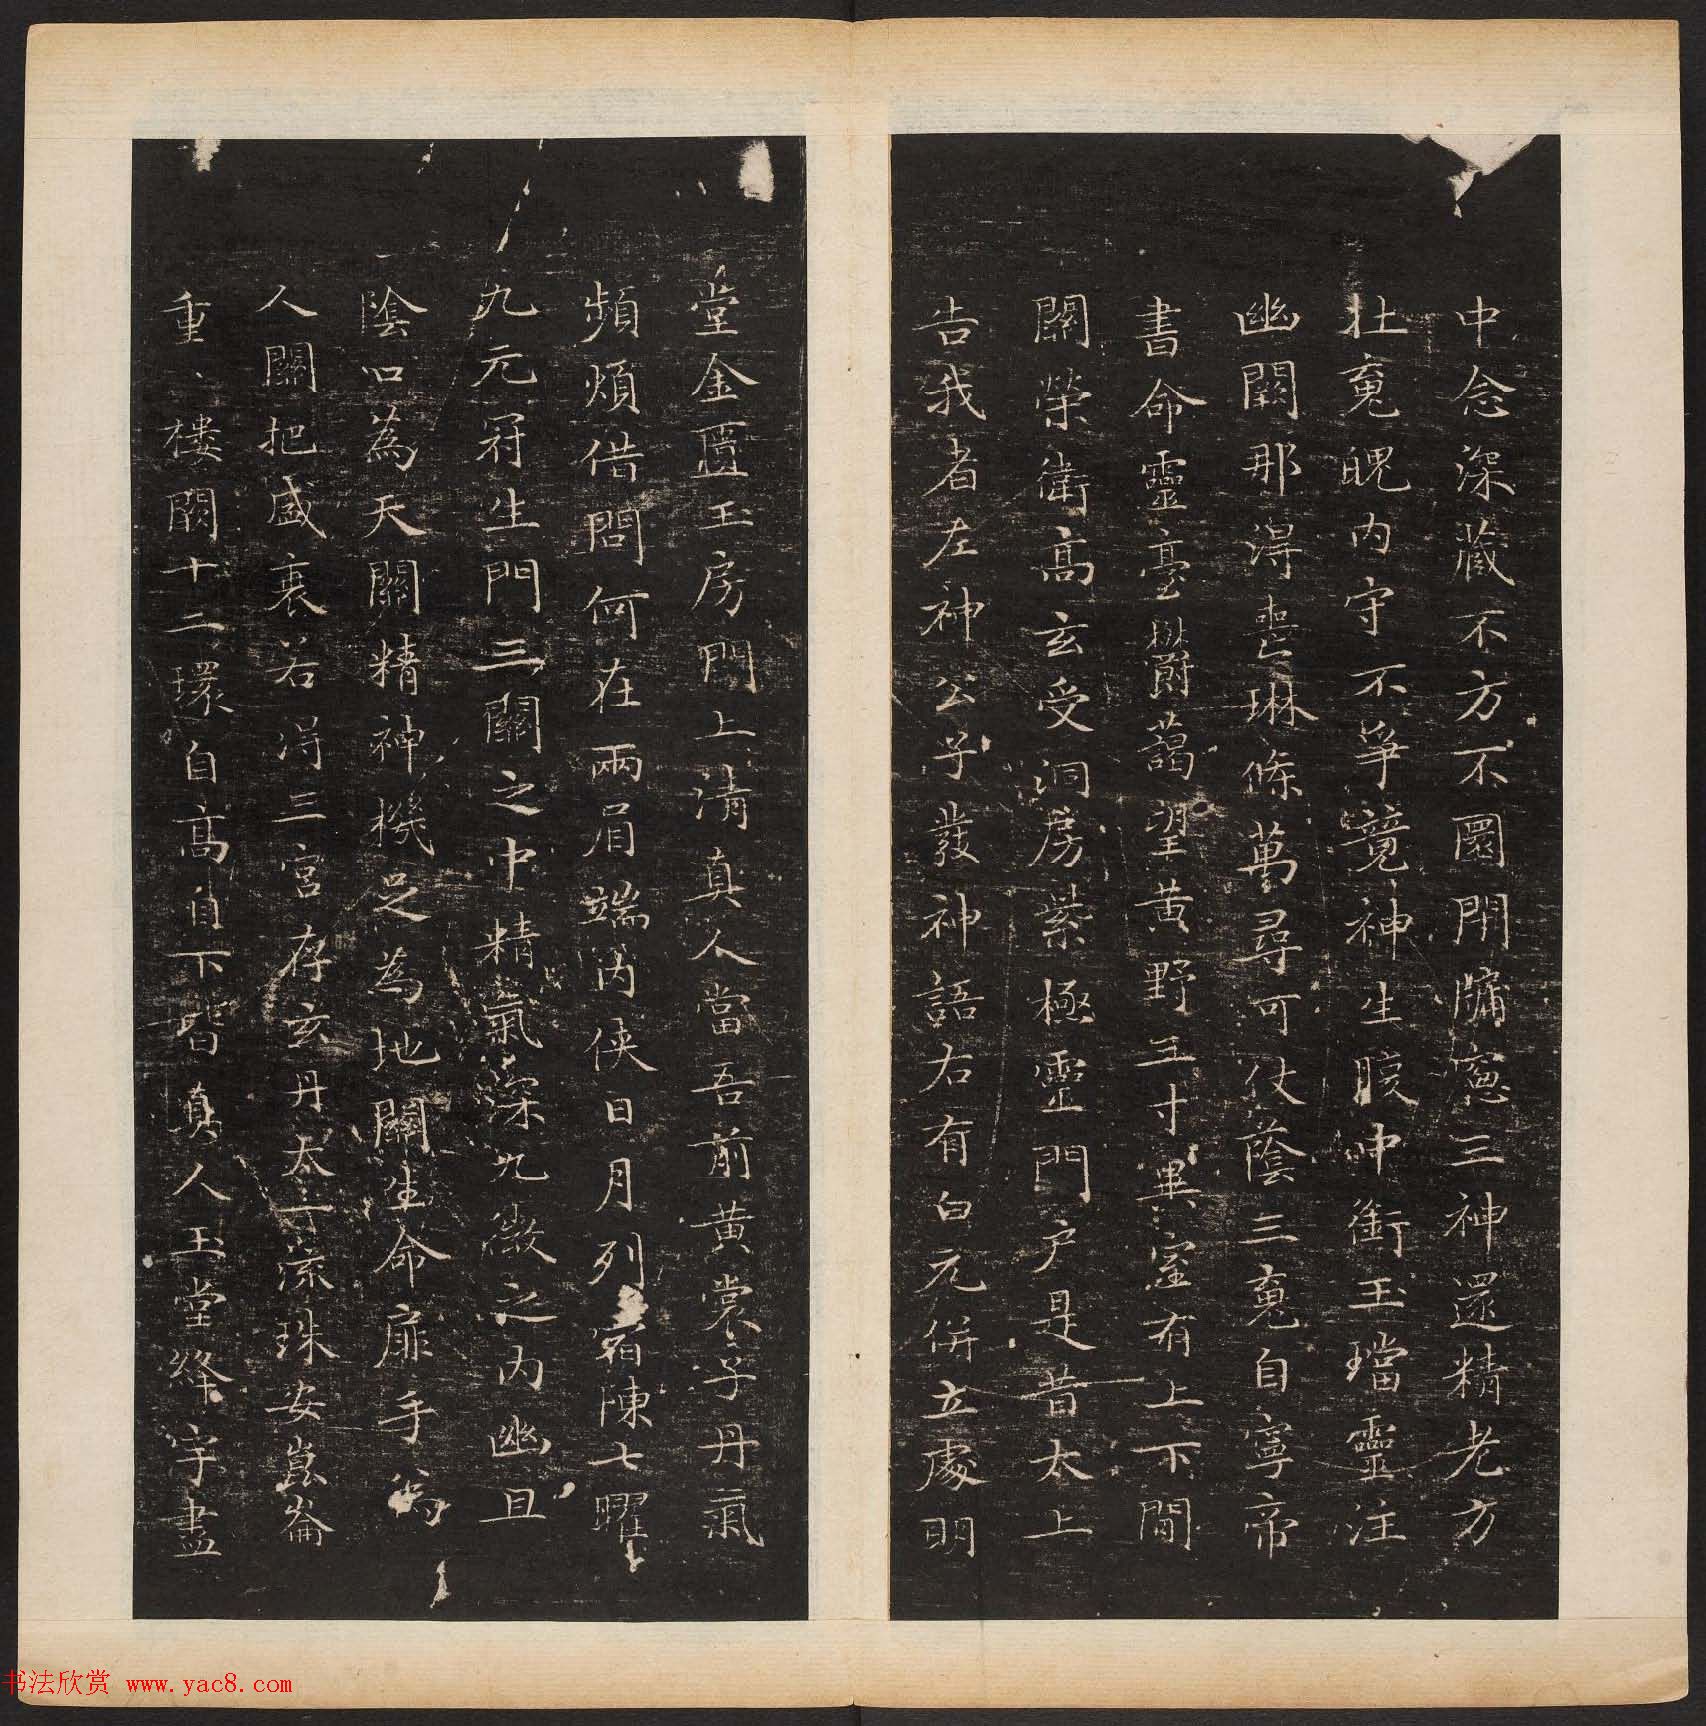 中念深藏不方不圓閉牖窻三神還精老方
壯䰟魄内守不爭競神生腹中銜玉璫靈注
幽闕那得喪琳條萬尋可仗蔭三䰟自寧帝
書命靈臺欝藹望黃野三寸異室有上下間
關榮衛高玄受洞房紫極靈門戶是昔太上
告我者左神公子發神語右有白元併立處明
堂金匱玉房間上清真人當吾前黃裳子丹氣
頻煩借問何在兩眉端内俠日月列宿陳七曜
九元冠生門三關之中精氣深九微之内幽且
陰口為天關精神機足為地關生命扉手為
人關把盛衰若得三宮存玄丹太一流珠安崑崙
重、樓閣十二環自高自下皆真人玉堂絳宇盡
书法欣赏 www.yac8.com